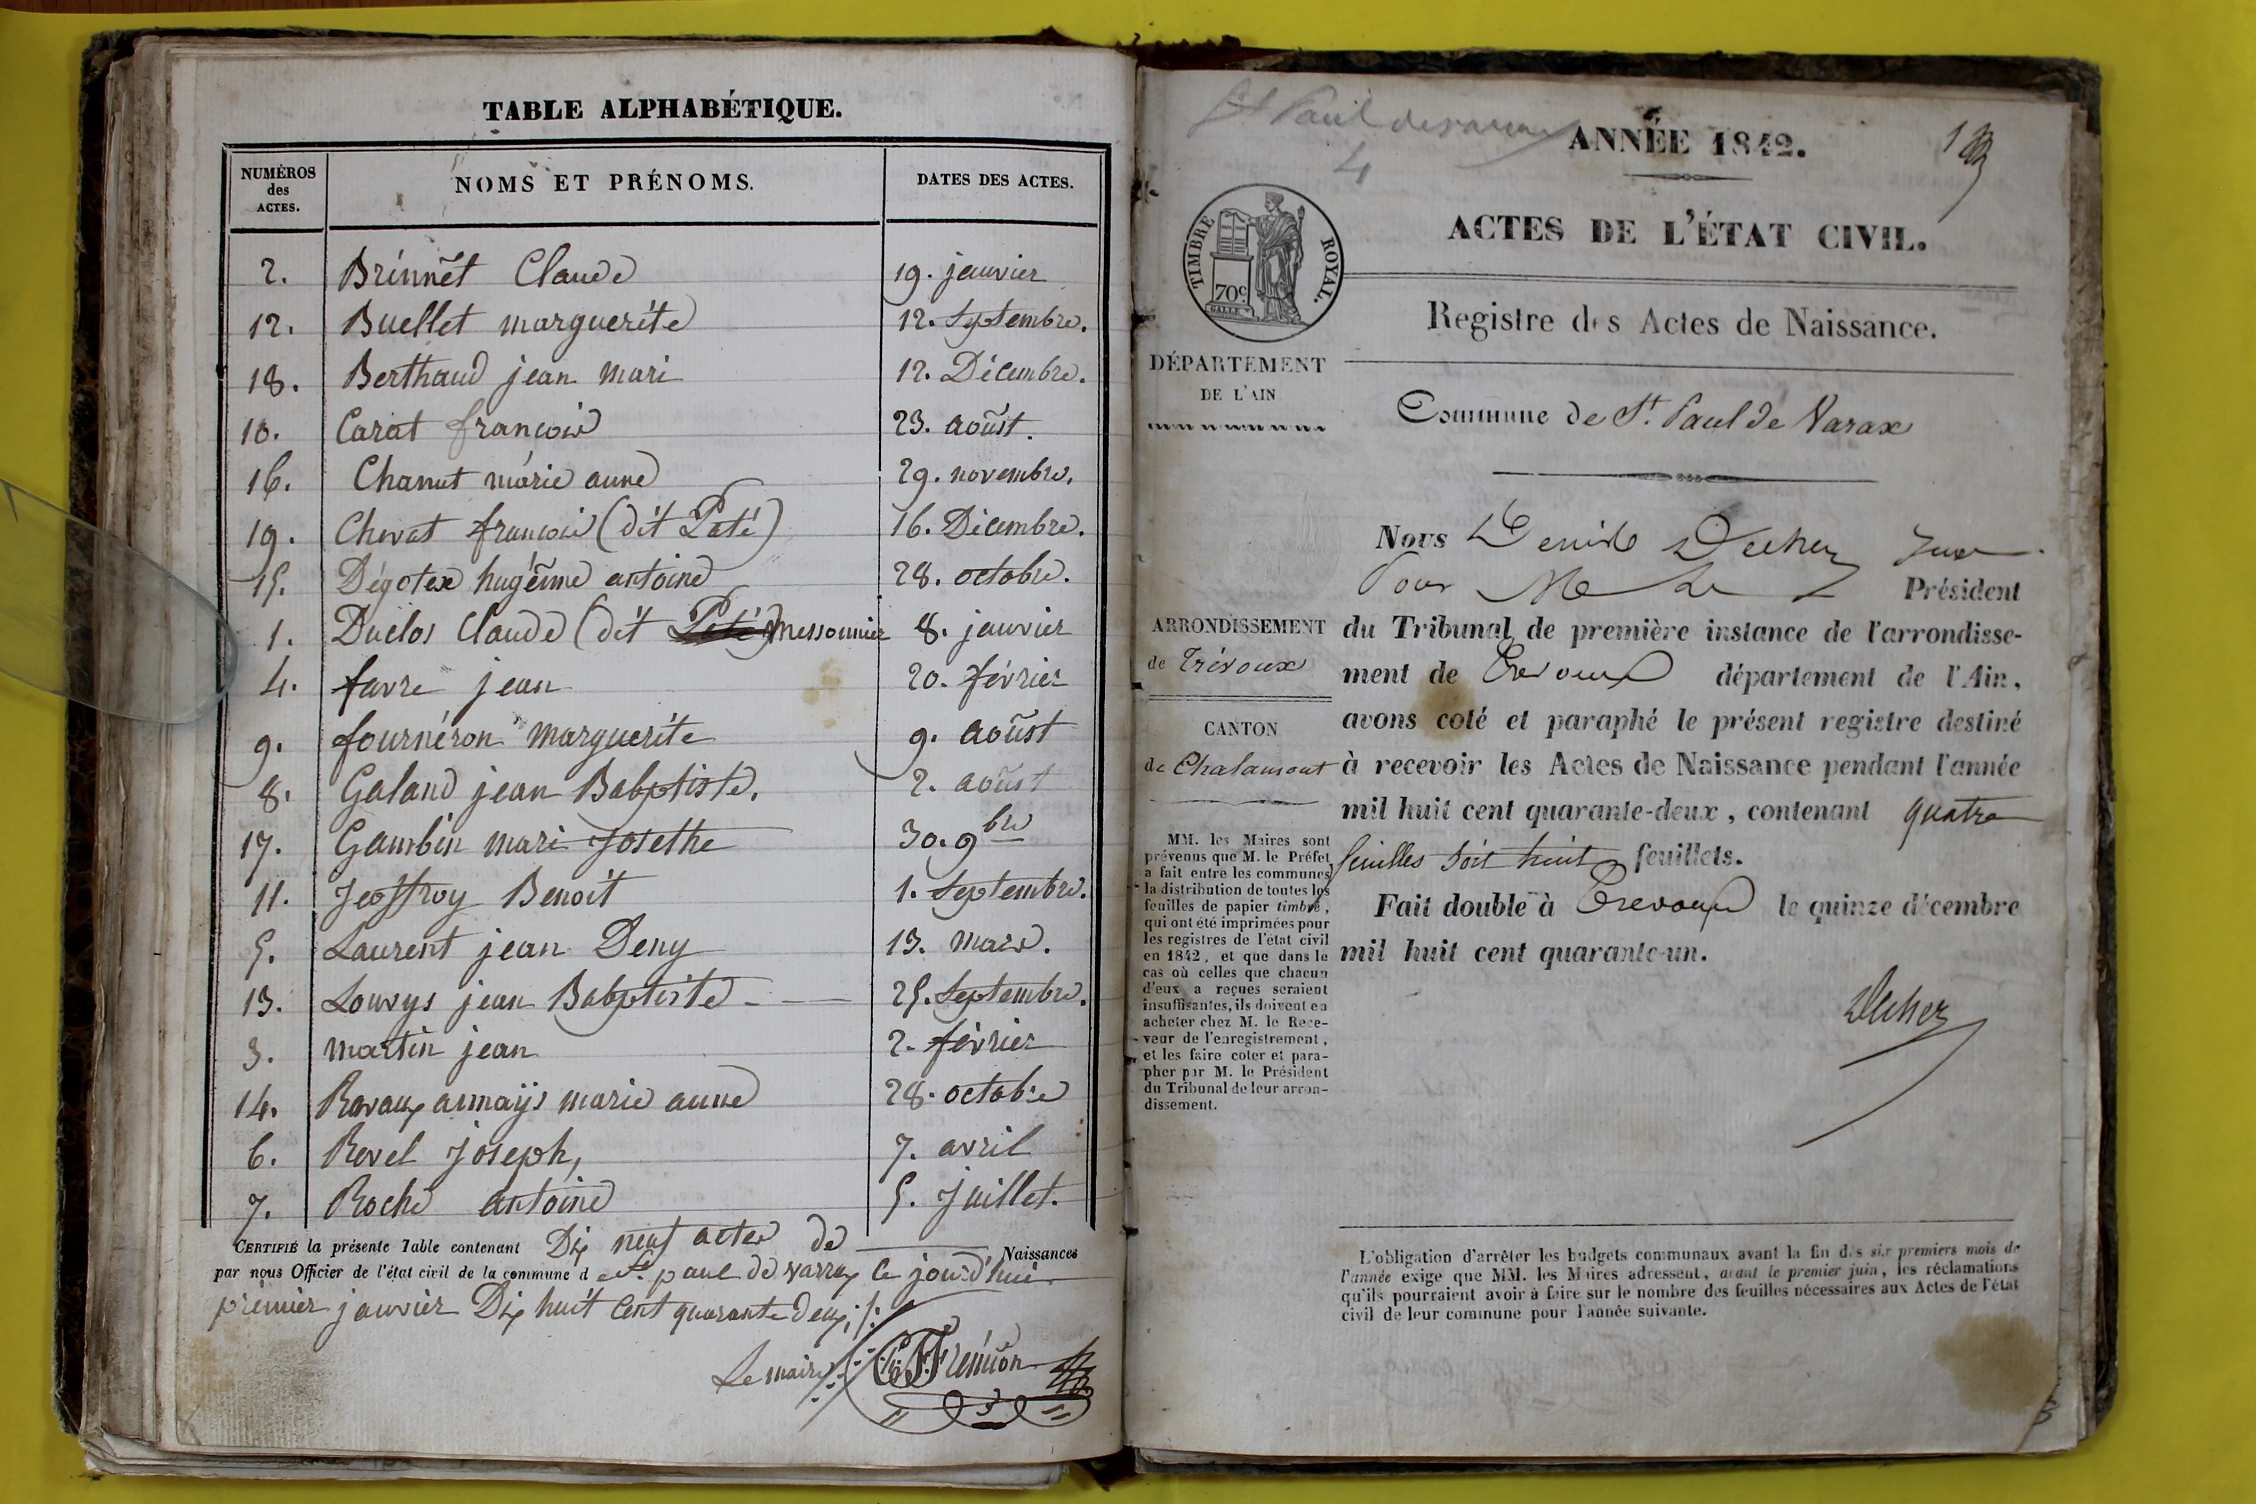 TABLE ALPHABÉTIQUE.
NUMÉROS des ACTES. NOMS ET PRÉNOMS. DATES DES ACTES.
2. Brinnet Claude 19. janvier
12. Buellet marguerite 12. Septembre.
18. Berthaud jean mari 12. Décembre.
10. Carat françois 23. aoûst.
16. Chanut marie anne 29. novembre.
19. Chevat françois (dit Paté) 16. Décembre.
15. Dégotex hugênne antoine 28. octobre.
1. Duclos Claude (dit Paté) messonnier 8. janvier
4. favre jean 20. février
9. fournéron marguerite 9. aoûst
8. Galand jean Babptiste. 2. aoûst
17. Gambin mari Josethe 30. 9bre
11. Jeoffroy Benoit 1. Septembre.
5. Laurent jean Deny 13. mars.
13. Louvys jean Babptiste 25. Septembre.
3. martin jean 2. février
14. Ravaux annaÿs marie anne 28. octobre
6. Revel Joseph, 7. avril
7. Roche antoine 5. Juillet.
CERTIFIÉ la présente Table contenant Dix neuf actes de Naissances
par nous Officier de l'état civil de la commune de St. paul de varax ce jourd'hui
premier janvier Dix huit Cent quarante deux
Le maire
ST Paul de varax
4
ANNÉE 1842.
ACTES DE L'ÉTAT CIVIL.
TIMBRE ROYAL.
70c.
Registre des Actes de Naissance.
DÉPARTEMENT
DE L'AIN
Commune de St. Paul de Varax
Nous Juge
Pour M Le Président
ARRONDISSEMENT
de Trévoux
CANTON
de Chalamont
du Tribunal de première instance de l'arrondisse-
ment de Trevoux département de l'Ain,
avons coté et paraphé le présent registre destiné
à recevoir les Actes de Naissance pendant l'année
mil huit cent quarante-deux, contenant quatre
feuilles soit huit feuillets.
Fait double à Trevoux le quinze décembre
mil huit cent quarante-un.
MM. les Maires sont
prévenus que M. le Préfet
a fait entre les communes
la distribution de toutes les
feuilles de papier timbré,
qui ont été imprimées pour
les registres de l'état civil
en 1842, et que dans le
cas où celles que chacun
d'eux a reçues seraient
insuffisantes, ils doivent en
acheter chez M. le Rece-
veur de l'enregistrement,
et les faire coter et para-
pher par M. le Président
du Tribunal de leur arron-
dissement.
L'obligation d'arrêter les budgets communaux avant la fin des six premiers mois de
l'année exige que MM. les Maires adressent, avant le premier juin, les réclamations
qu'ils pourraient avoir à faire sur le nombre des feuilles nécessaires aux Actes de l'état
civil de leur commune pour l'année suivante.